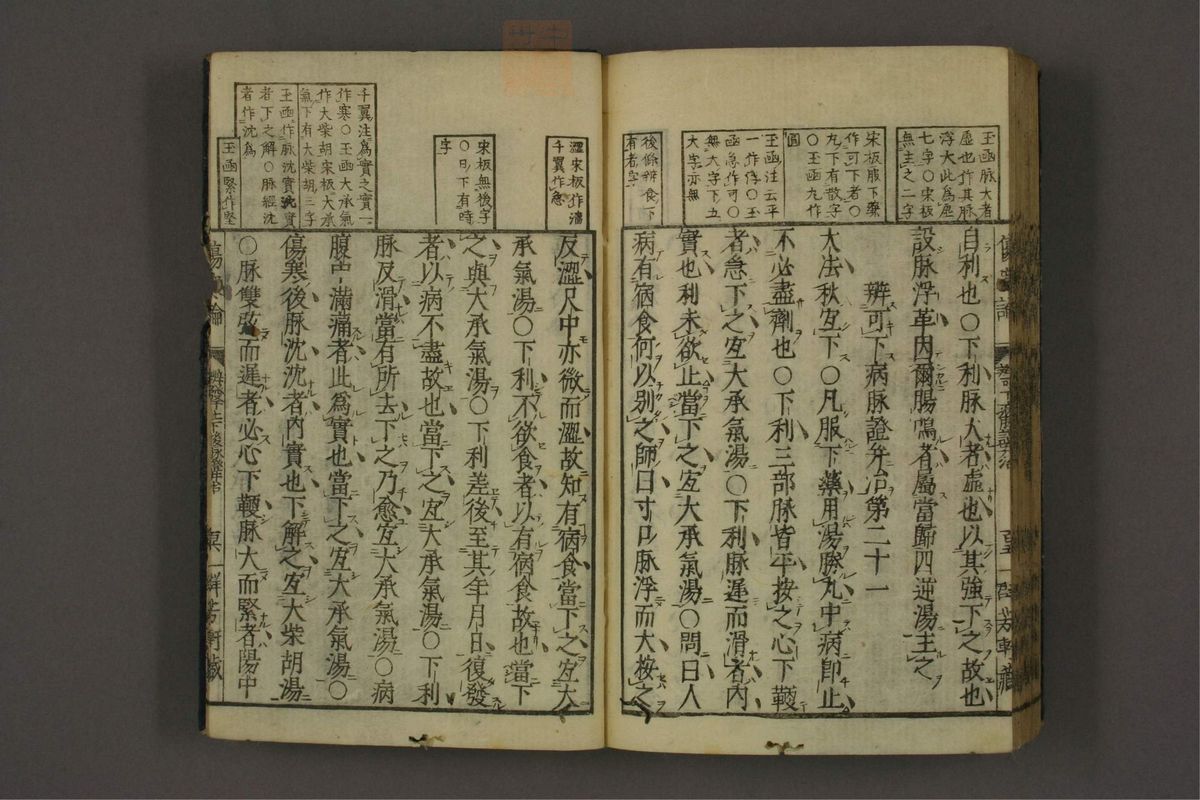 玉函脉大者
虛也作其脉
浮大此爲虛
七字○宋板
無主之二字
宋板服下藥
作可下者○
丸下有散字
○玉函丸作
圓
玉函注云平
一作浮○玉
函急作可○
無大字下五
大字亦無
後條辨食下
有者字
自利也○下利脉大者虛也以其強下之故也
設脉浮革因爾腸鳴者屬當歸四逆湯主之
辨可下病脉證并治第二十一
大法秋宜下○凡服下藥用湯勝丸中病卽止
不必盡劑也○下利三部脉皆平按之心下鞕
者急下之宜大承氣湯○下利脉遲而滑者內
實也利未欲止當下之宜大承氣湯○問曰人
病有宿食何以別之師曰寸口脉浮而大按之
澀宋板作濇
千翼作急
宋板無後字
○日下有時
字
千翼注爲實之實一
作寒○玉函大承氣
作大柴胡宋板大承
氣下有大柴胡三字
玉函作脉沈實沈實
者下之解○脉經沈
者作沈爲
玉函緊作堅
反澀尺中亦微而澀故知有宿食當下之宜大
承氣湯○下利不欲食者以有宿食故也當下
之與大承氣湯○下利差後至其年月日復發
者以病不盡故也當下之宜大承氣湯○下利
脉反滑當有所去下之乃愈宜大承氣湯○病
腹中滿痛者此爲實也當下之宜大承氣湯○
傷寒後脉沈沈者內實也下解之宜大柴胡湯
○脉雙弦而遲者必心下鞕脉大而緊者陽中
傷寒論
群芳軒藏